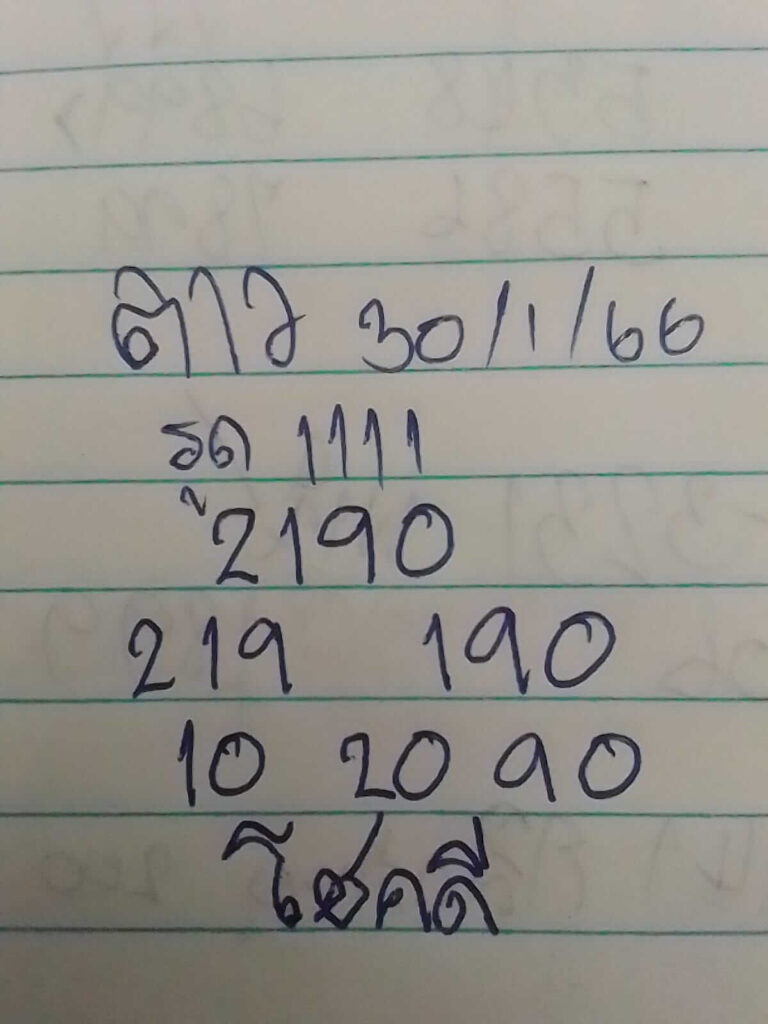 ลาว 30/1/66
รูด 1111
2190
219 190
10 20 90
โชคดี